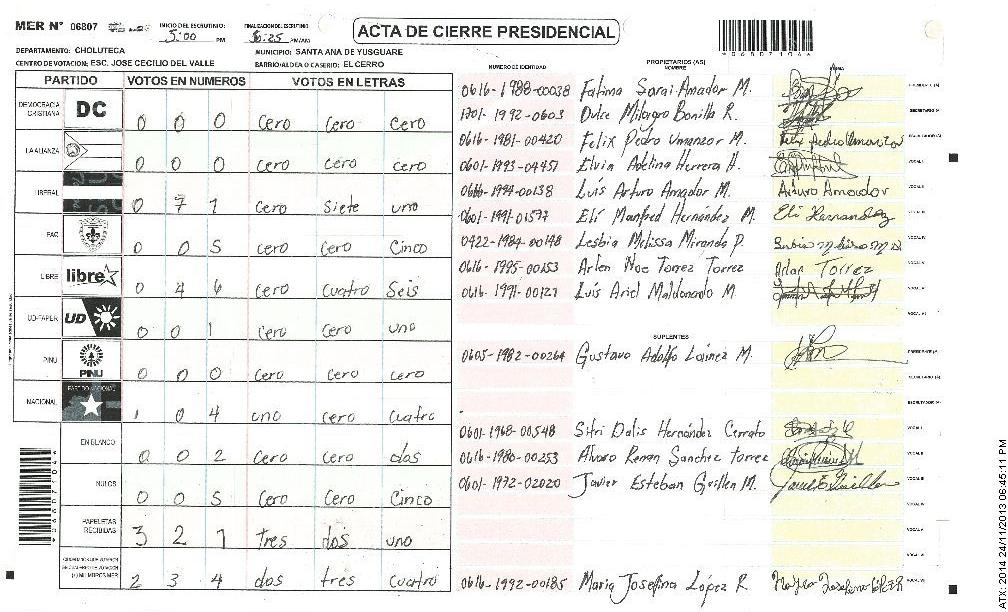 MER N° 06807 INICIO DEL ESCRUTINIO: 5:00 PM FINALIZACION DEL ESCRUTINIO 6:25 PM/AM
ACTA DE CIERRE PRESIDENCIAL
*06807104*
DEPARTAMENTO: CHOLUTECA MUNICIPIO: SANTA ANA DE YUSGUARE
CENTRO DE VOTACION: ESC. JOSE CECILIO DEL VALLE BARRIO/ALDEA O CASERIO: EL CERRO
PARTIDO VOTOS EN NUMEROS VOTOS EN LETRAS
DEMOCRACIA CRISTIANA DC 0 0 0 cero cero cero
LA ALIANZA 0 0 0 cero cero cero
LIBERAL 0 7 1 cero siete uno
PAC 0 0 5 cero cero cinco
LIBRE libre 0 4 6 cero cuatro seis
UD-FAPER UD 0 0 1 cero cero uno
PINU PINU 0 0 0 cero cero cero
NACIONAL PARTIDO NACIONAL 1 0 4 uno cero cuatro
EN BLANCO 0 0 2 cero cero dos
NULOS 0 0 5 cero cero cinco
PAPELETAS RECIBIDAS 3 2 1 tres dos uno
(+) MIEMBROS MER 2 3 4 dos tres cuatro
*06807104*
NUMERO DE IDENTIDAD PROPIETARIOS (AS) NOMBRE FIRMA
0616-1988-00038 Fatima Sarai Amador M.
1701-1992-0603 Dulce Milagro Bonilla R.
0616-1981-00420 Felix Pedro Umanzor M.
0601-1993-04457 Elvin Adelina Herrera H.
0616-1994-00138 Luis Arturo Amador M. Arturo Amador
0601-1991-01577 Elí Manfred Hernández M. Eli Hernandez
0422-1984-00148 Lesbia Melissa Miranda P.
0616-1995-00153 Arlen Noe Torrez Torrez Arlen Torrez
0616-1991-00127 Luis Ariel Maldonado M
SUPLENTES
0605-1982-00264 Gustavo Adolfo Laínez M.
0601-1968-00548 Sitri Dalis Hernández Cerrato
0616-1980-00253 Alvaro Renan Sanchez Torrez
0601-1972-02020 Javier Esteban Guillen M.
0616-1992-00185 Maria Josefina López R.
ATX 2014 24/11/2013 06:45:11 PM